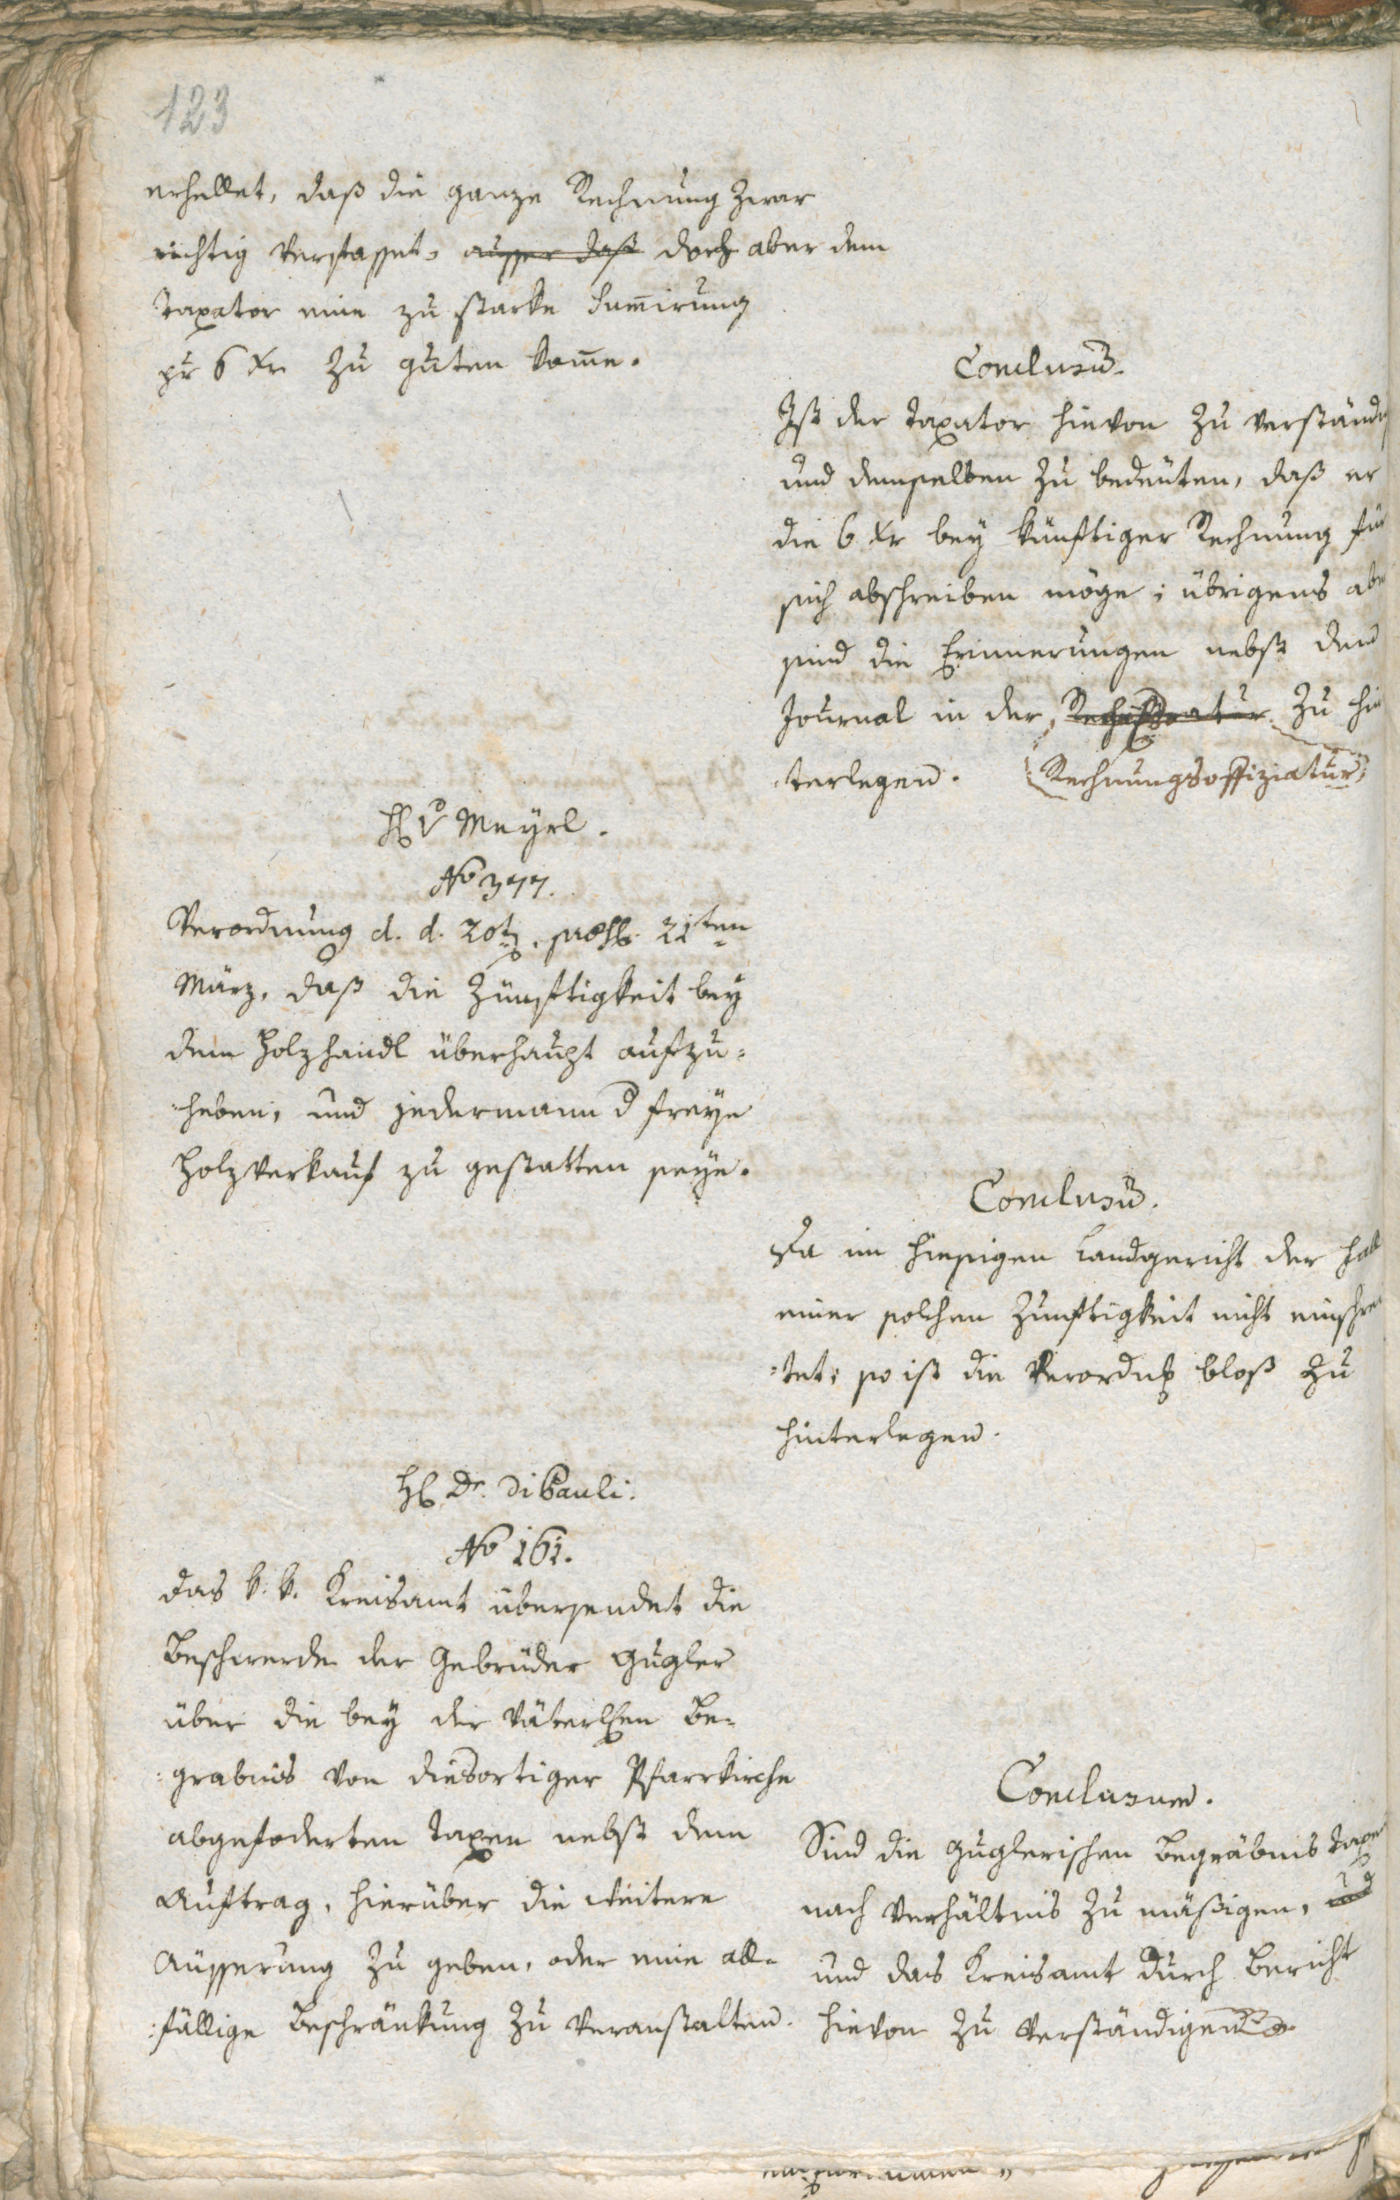 123
erhellet, daß die ganze Rechnung zwar
richtig verfasset, ausser daß doch aber dem
Taxator eine zu starke Sum̅irung
pr 6 xr zu guten kom̅e.
Conclusum̅.
Ist der Taxator hievon zu verständ
und demselben zu bedeuten, daß er
die 6 xr bey künftiger Rechnung für
sich abschreiben möge; übrigens aber
sind die Erinnerungen nebst dem
Journal in der zu hin
Rechnungsoffiziatur
terlegen.
H v Meyrl.
No 377.
Verordnung d. d. 20t. 21ten
März, daß die Zünftigkeit bey
dem Holzhandl überhaupt aufzu=
heben, und jedermann d freye
Holzverkauf zu gestatten seye.
Conclusum̅.
Da im hiesigen Landgericht der Fall
einer solchen Zunftigkeit nicht einschrei
=tet; so ist die Verordng bloß zu
hinterlegen.
H Dr. Di Pauli.
No 161.
Das k. k. Kreisamt übersendet die
Beschwerde der Gebrüder Gugler
über die bey der väterlichen Be=
:grabnis von diesortiger Pfarrkirche
abgefoderten Taxen nebst dem
Auftrag, hierüber die weitere
Äusserung zu geben, oder eine all=
:fällige Beschränkung zu veranstalten.
Conclusum.
Sind die Guglerischen Begräbnis Taxen
nach Verhältnis zu mäßigen, und
und das Kreisamt durch Bericht
hievon zu verständigen